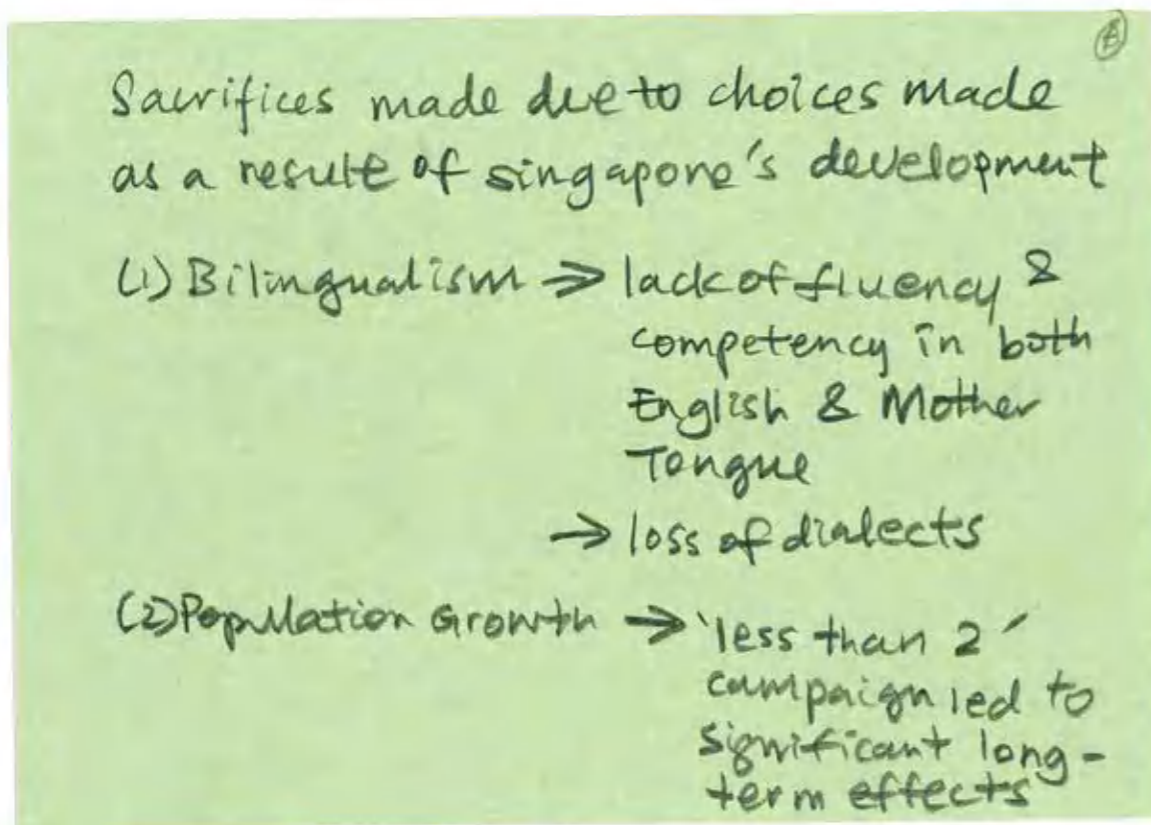 Sacrifices made due to choices made
as a result of singapore's development
(1) Bilingualism → lack of fluency &
competency in both
English & Mother
Tongue
→ loss of dialects
(2) Population Growth → 'less than 2'
campaign led to
significant long-
term effects